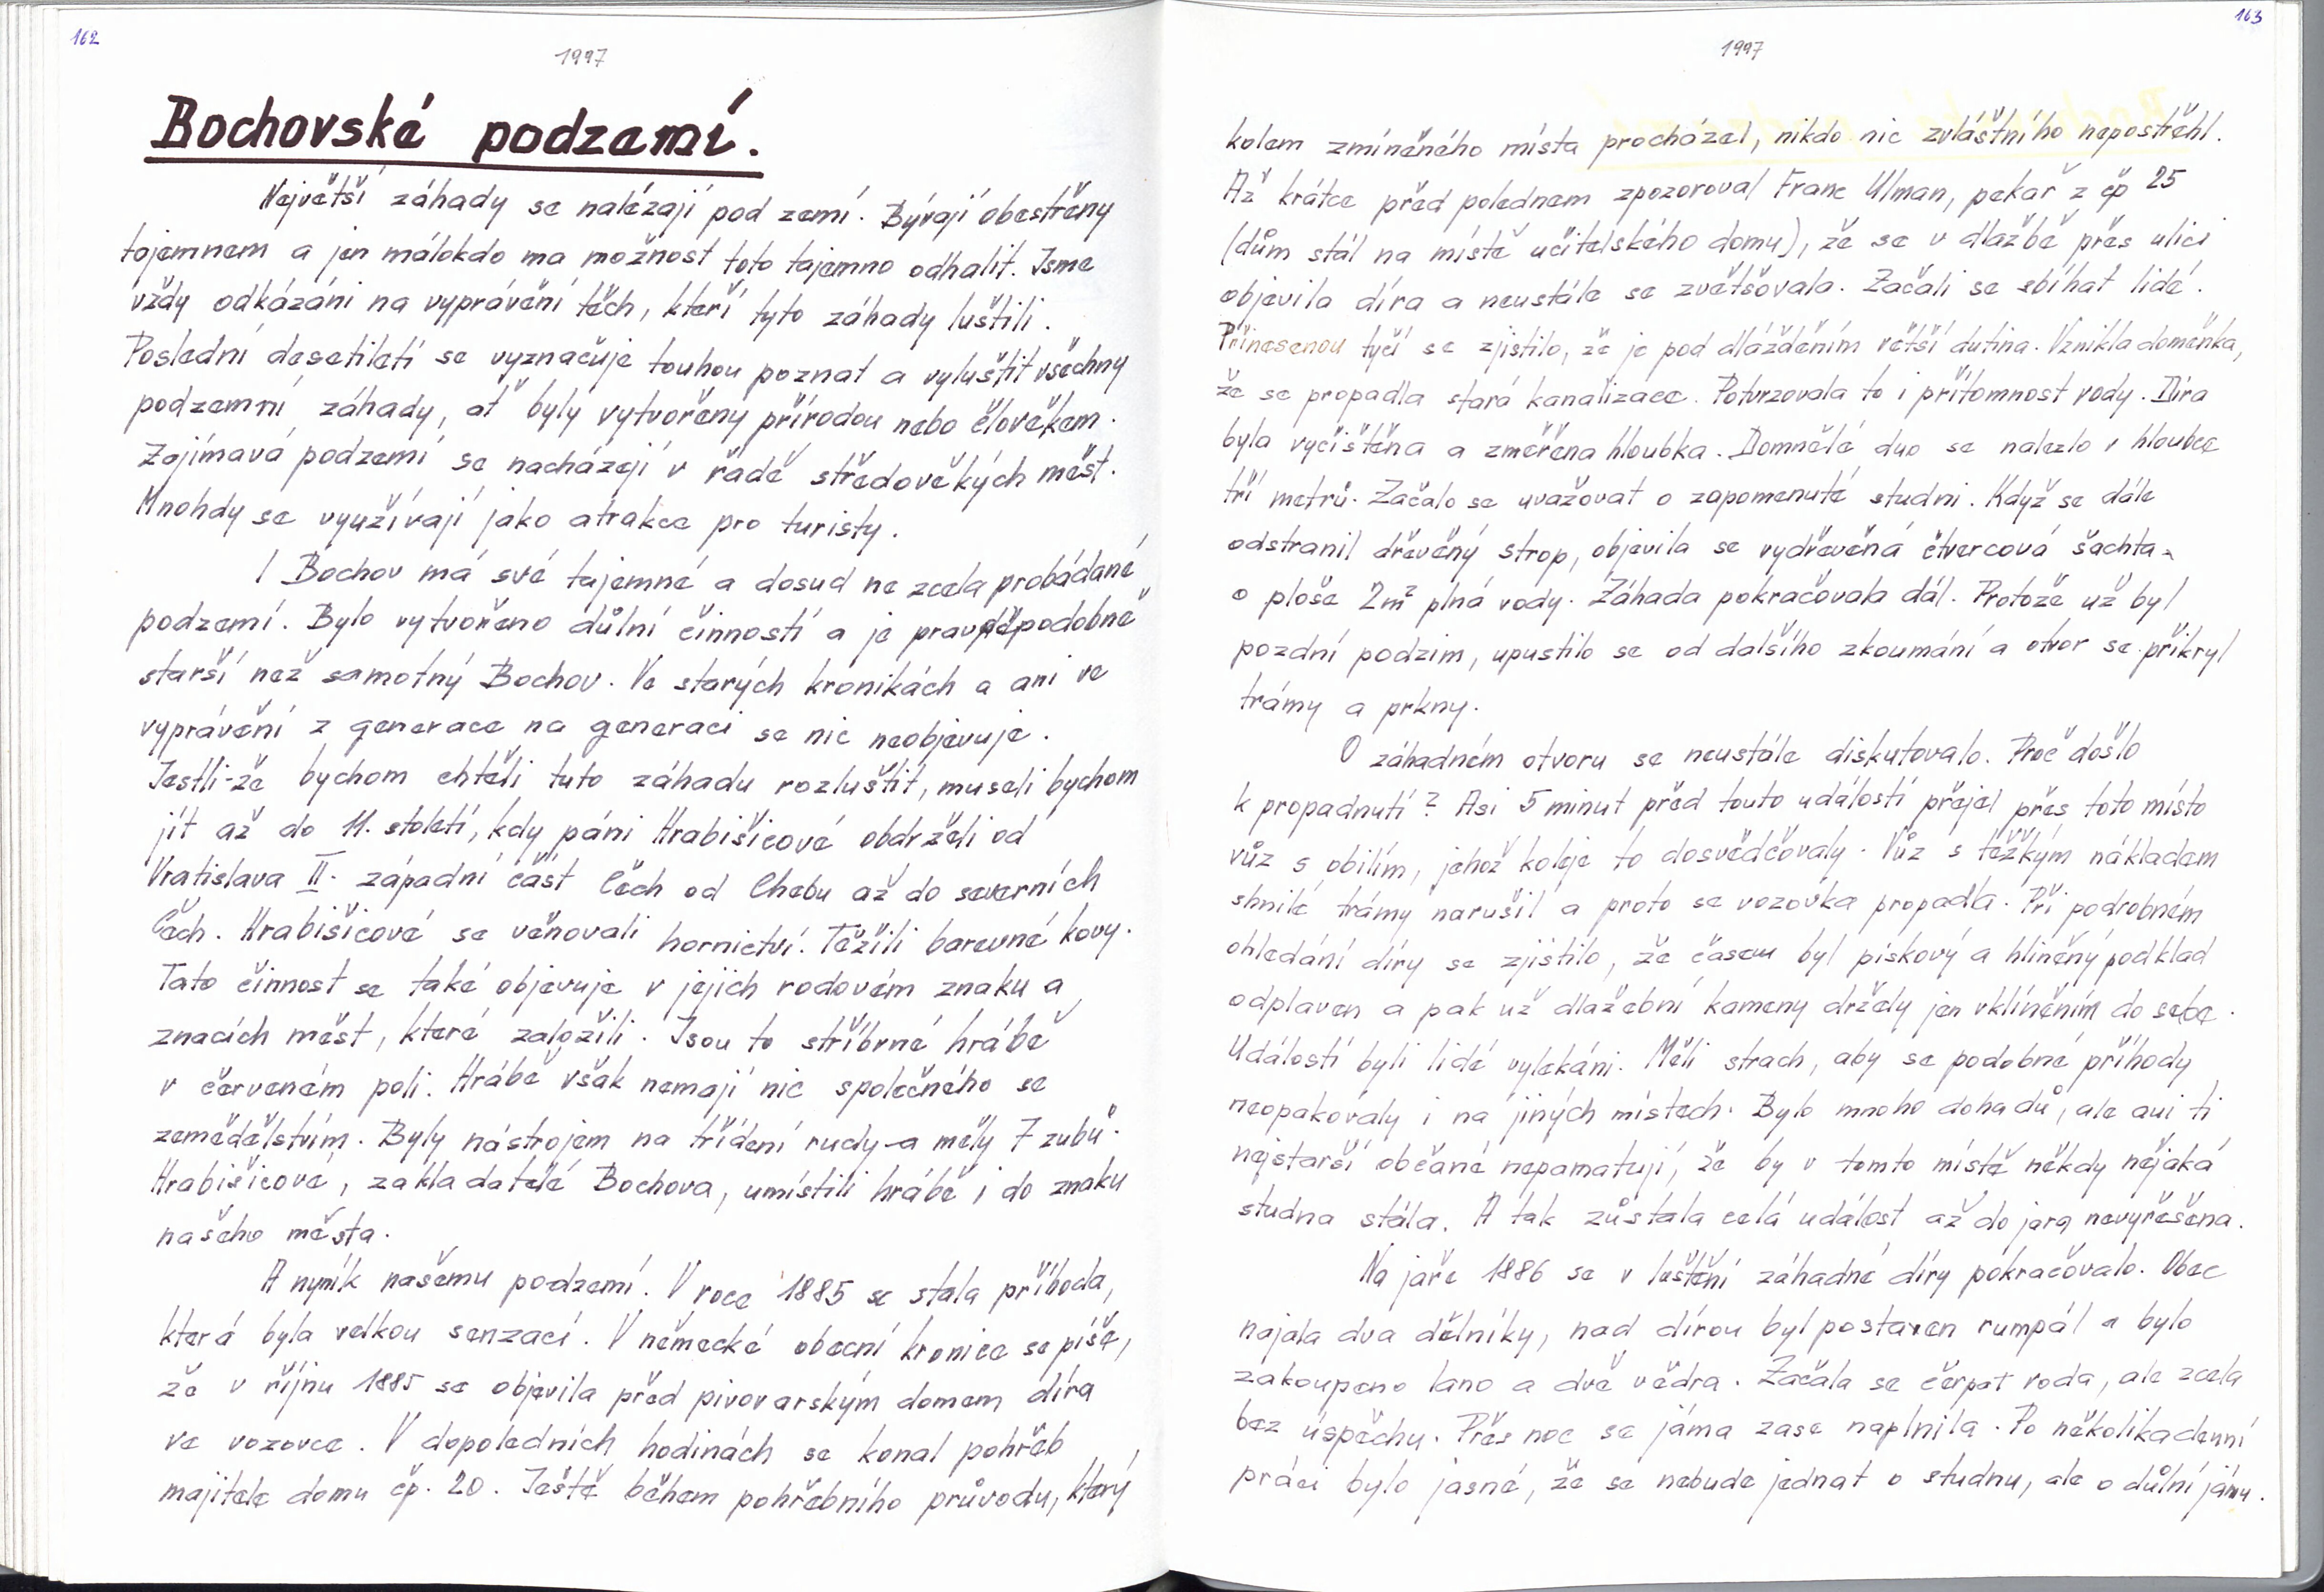 162
1997
Bochovské podzemí.
Největší záhady se nalézají pod zemí. Bývají obestřeny
tajemnem a jen málokdo ma možnost toto tajemno odhalit. Jsme
vždy odkázáni na vyprávění těch, kteří tyto záhady luštili.
Poslední desetiletí se vyznačuje touhou poznat a vyluštit všechny
podzemní záhady, ať byly vytvořeny přírodou nebo člověkem.
Zajímavá podzemí se nacházejí v řadě středověkých měst.
Mnohdy se využívají jako atrakce pro turisty.
I Bochov má své tajemné a dosud ne zcela probádané
podzemí. Bylo vytvořeno důlní činností a je pravděpodobně
starší než samotný Bochov. Ve starých kronikách a ani ve
vyprávění z generace na generaci se nic neobjevuje.
Jestli-že bychom chtěli tuto záhadu rozluštit, museli bychom
jít až do 11. století, kdy páni Hrabišicové obdrželi od
Vratislava II. západní část Čech od Chebu až do severních
Čech. Hrabišicové se věnovali hornictví. Těžili barevné kovy.
Tato činnost se také objevuje v jejich rodovém znaku a
znacích měst, které založili. Jsou to stříbrné hrábě
v červeném poli. Hrábě však nemají nic společného se
zemědělstvím. Byly nástrojem na třídení rudy a měly 7 zubů.
Hrabišicové, zakladatelé Bochova, umístili hrábě i do znaku
našeho města.
A nyník našemu podzemí. V roce 1885 se stala příhoda,
která byla velkou senzací. V německé obecní kronice se píše,
že v říjnu 1885 se objevila před pivovarským domem díra
ve vozovce. V dopoledních hodinách se konal pohřeb
majitele domu čp. 20. Ještě během pohřebního průvodu, který
163
1997
kolem zmíněného místa procházel, nikdo nic zvláštního nepostřehl.
Až krátce před polednem zpozoroval Franc Ulman, pekař z čp 25
(dům stál na místě učitelského domu), že se v dlažbě přes ulici
objevila díra a neustále se zvětšovala. Začali se sbíhat lidé.
Přinesenou tyčí se zjistilo, že je pod dlážděním větší dutina. Vznikla doměnka,
že se propadla stará kanalizace. Potvrzovala to i přítomnost vody. Díra
byla vyčištěna a změřena hloubka. Domnělé dno se nalezlo v hloubce
tří metrů. Začalo se uvažovat o zapomenuté studni. Když se dále
odstranil dřevěný strop, objevila se vydřevěná čtvercová šachta
o ploše 2m² plná vody. Záhada pokračovala dál. Protože už byl
pozdní podzim, upustilo se od dalšího zkoumání a otvor se přikryl
trámy a prkny.
O záhadném otvoru se neustále diskutovalo. Proč došlo
k propadnutí? Asi 5 minut před touto událostí přejel přes toto místo
vůz s obilím, jehož koleje to dosvědčovaly. Vůz s těžkým nákladem
shnilé trámy narušil a proto se vozovka propadla. Při podrobném
ohledání díry se zjistilo, že časem byl pískový a hliněný podklad
odplaven a pak už dlažební kameny držely jen vklíněním do sebe.
Událostí byli lidé vylekáni. Měli strach, aby se podobné příhody
neopakovaly i na jiných místech. Bylo mnoho dohadů, ale ani ti
nejstarší občané nepamatují, že by v tomto místě někdy nějaká
studna stála. A tak zůstala celá událost až do jara nevyřešena.
Na jaře 1886 se v luštění záhadné díry pokračovalo. Obec
najala dva dělníky, nad dírou byl postaven rumpál a bylo
zakoupeno lano a dvě vědra. Začala se čerpat voda, ale zcela
bez úspěchu. Přes noc se jáma zase naplnila. Po několikadenní
práci bylo jasné, že se nebude jednat o studnu, ale o důlní jámu.